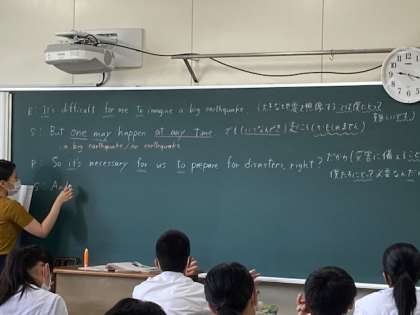 R: It's difficult for me to imagine a big earthquake. (大きな地震を想像することは僕にとって
難しいです)
S: But one may happen at any time でも(いつなんどき)起こる(かもしれません)
a big earthquake / an earthquake
R: So it's necessary for us to prepare for disasters, right? だから(災害に備えること
僕たちにとって必要なんだ
S: An